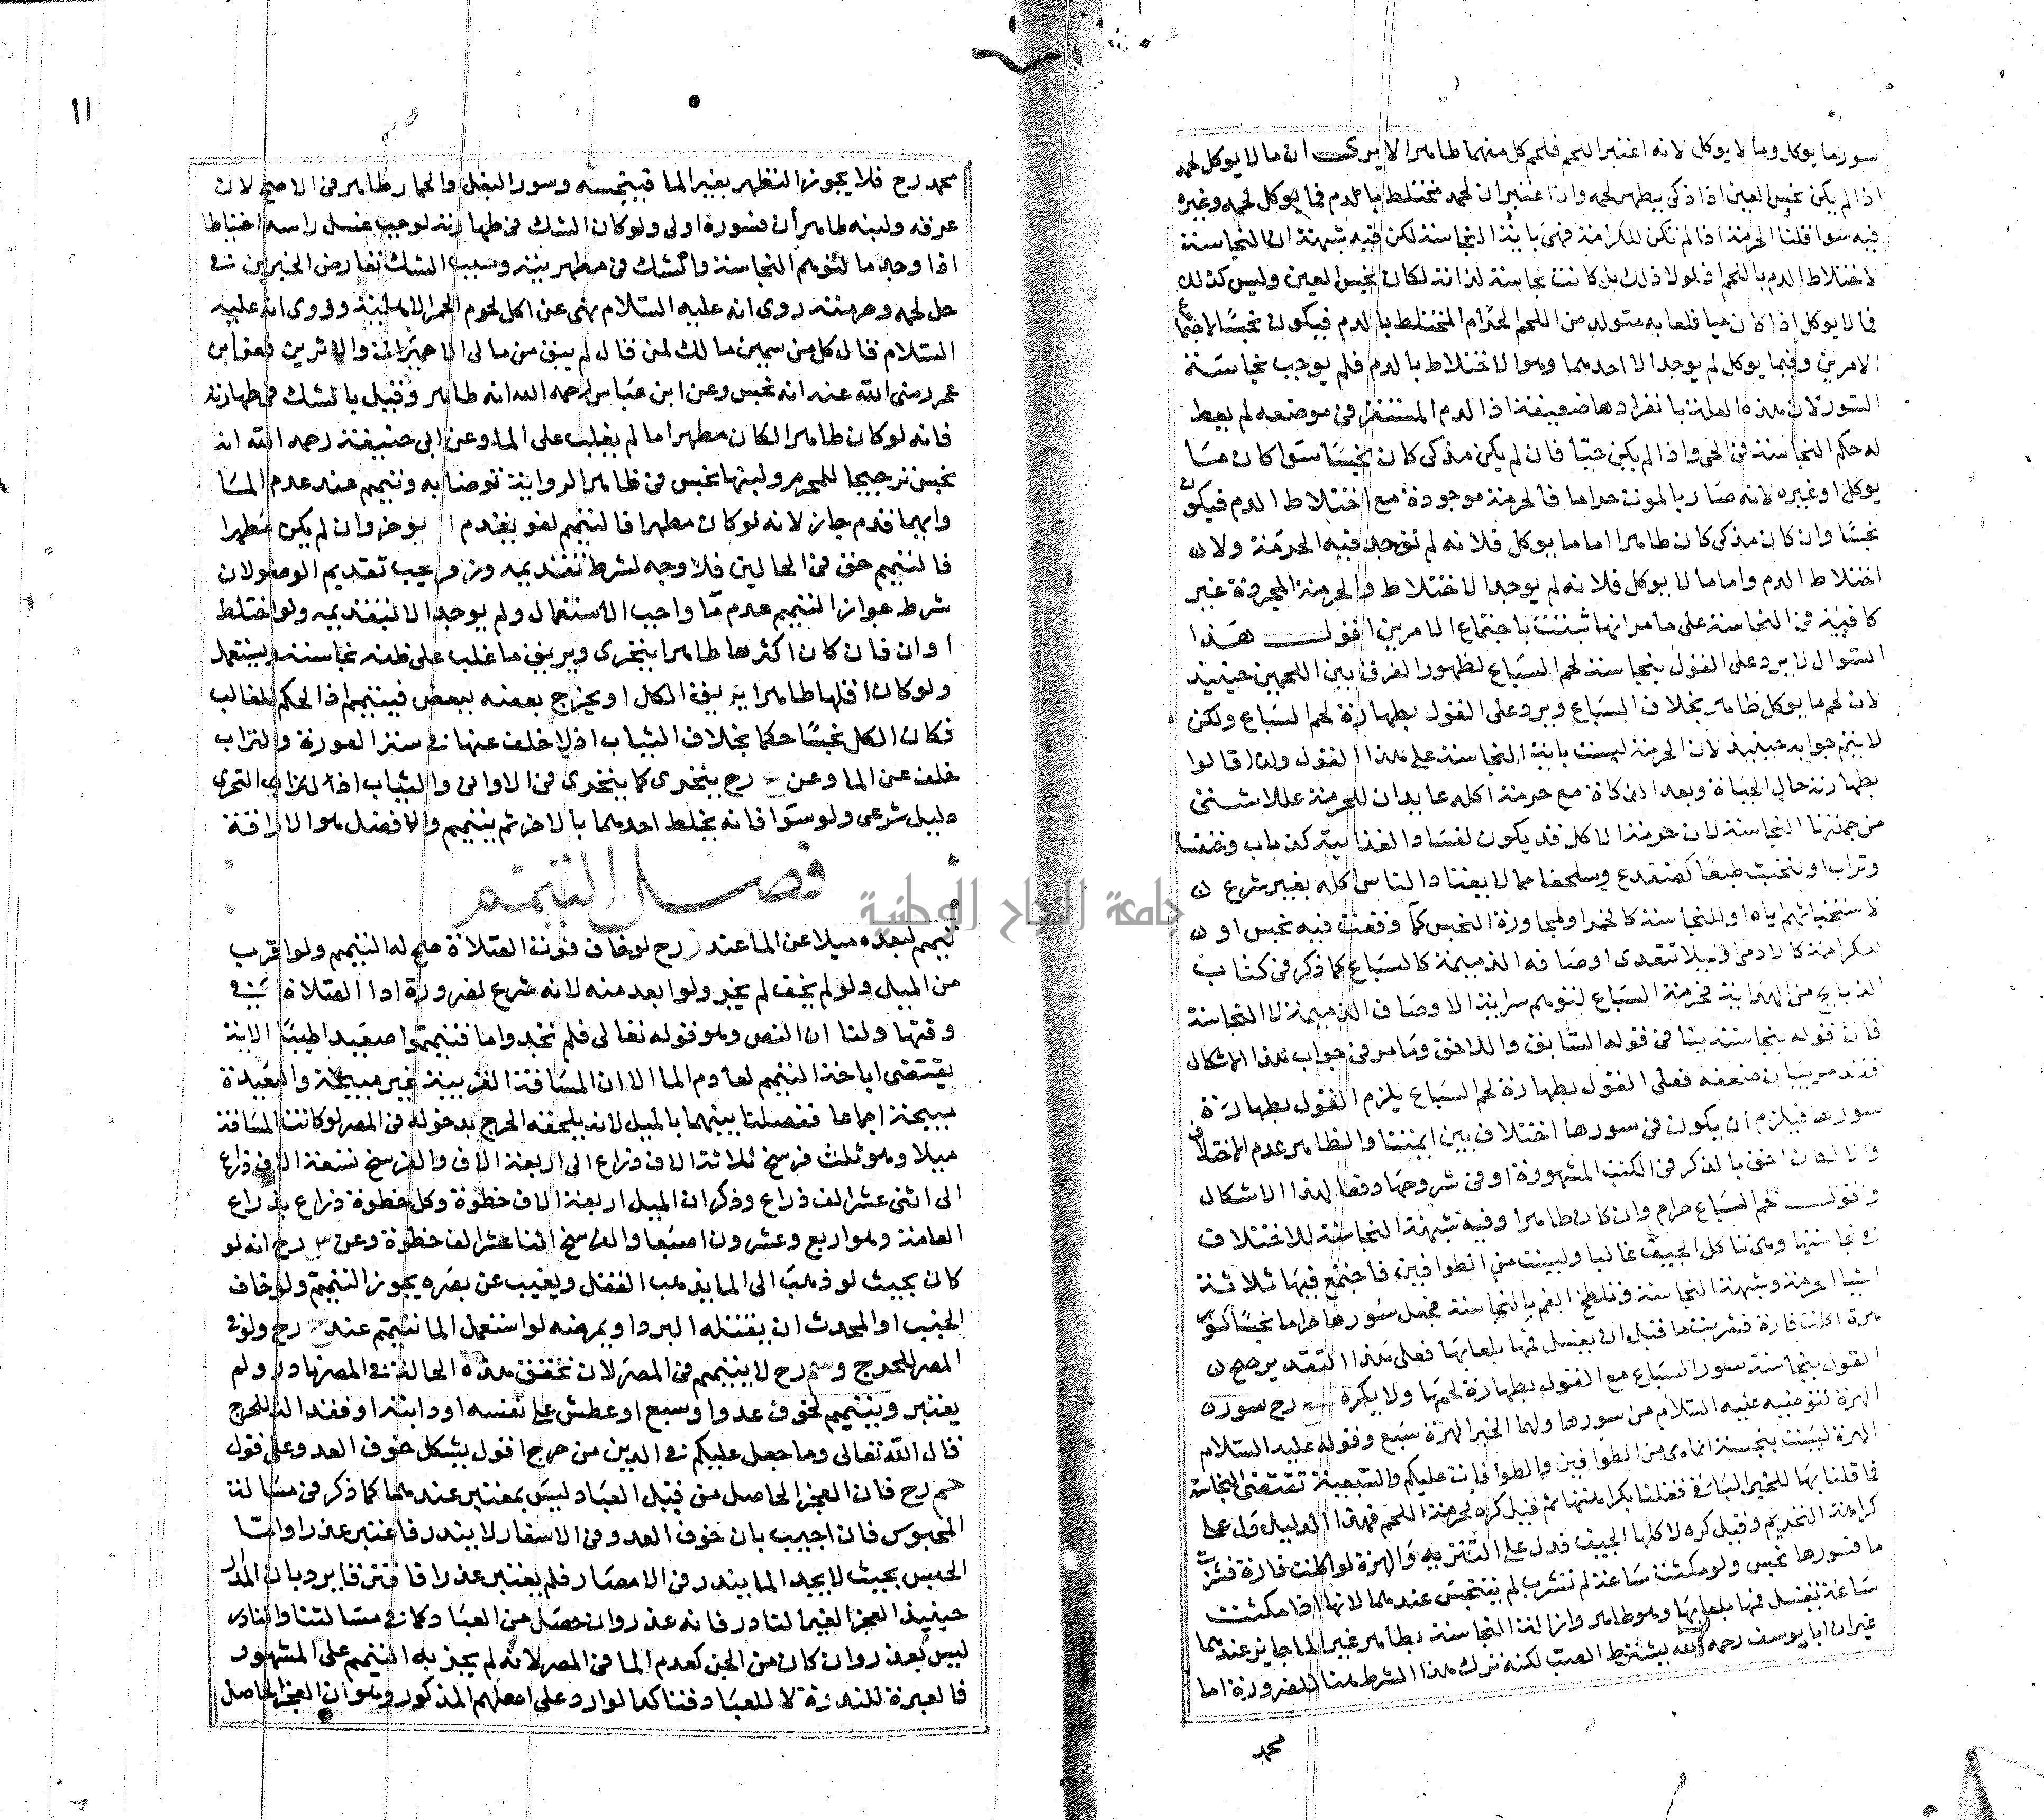 سور ما يوكل وما لا يوكل لانه اعتبر اللحم فلحم كل منهما طاهر الا يرى ان ما لا يوكل لحمه
اذا لم يكن نجس العين اذا ذكى يطهر لحمه وان اعتبر ان لحمه مختلط بالدم فما يوكل لحمه وغيره
فيه سوا قلنا الحرمة اذا لم تكن للكرامة فهى باية النجاسة لكن فيه شبهة ان النجاسة
لاختلاط الدم باللحم اذ لولا ذلك بل كانت نجاسة لذاته لكان نجس العين وليس كذلك
فما لا يوكل اذا كان حيا فلعابه متولد من اللحم الحرام المختلط بالدم فيكون نجسا لاجتماع
الامرين وفيما يوكل لم يوجد الا احدهما وهو الاختلاط بالدم فلم يوجب نجاسة
السور لان هذه العلة بانفرادها ضعيفة اذ الدم المستقر فى موضعه لم يعط
له حكم النجاسة فى الحى واذا لم يكن حيا فان لم يكن مذكى كان نجسا سوا كان مما
يوكل او غيره لانه صار بالموت حراما فالحرمة موجودة مع اختلاط الدم فيكون
نجسا وان كان مذكى كان طاهرا اما ما يوكل فلانه لم توجد فيه الحرمة ولا
اختلاط الدم واما ما لا يوكل فلانه لم يوجد الاختلاط والحرمة المجردة غير
كافية فى النجاسة على ما مر انها تثبت باجتماع الامرين اقول هذا
السوال لا يرد على القول بنجاسة لحم السباع لظهور الفرق بين اللحمين حينيذ
لان لحم ما يوكل طاهر بخلاف السباع ويرد على القول بطهارة لحم السباع ولكن
لا يتم جوابه حينيذ لان الحرمة ليست باية النجاسة على هذا القول ولذا قالوا
بطهارته حال الحياة وبعد الذكاة مع حرمة اكله عايدان للحرمة عللا شتى
من جملتها النجاسة لان حرمة الاكل قد يكون لفساد الغذا كذباب وخنفسا
وتراب او لخبث طبعا كضفدع وسلحفا مما لا يعتاد الناس اكله بغير شرع
لاستخباثهم اياه او للنجاسة كالخمر او لمجاورة النجس كما وقعت فيه نجس او
للكرامة كالادمى او ليلا تتعدى اوصافه الذميمة كالسباع كما ذكر فى كتاب
الذبايح من الهداية فحرمة السباع لتوهم سراية الاوصاف الذميمة لا النجاسة
فان قوله بنجاسته ينافى قوله السابق واللاحق وما مر فى جواب هذا الاشكال
فقد مر بيان ضعفه فعلى القول بطهارة لحم السباع يلزم القول بطهارة
سورها فيلزم ان يكون فى سورها اختلاف بين ايمتنا والظاهر عدم الاختلاف
والا لكان احق بالذكر فى الكتب المشهورة او فى شروحها دفعا لهذا الاشكال
واقول لحم السباع حرام وان كان طاهرا وفيه شبهة النجاسة للاختلاف
فى نجاستها وهى تاكل الجيف غالبا وليست من الطوافين فاجتمع فيها ثلاثة
اشيا الحرمة وشبهة النجاسة وتلطخ الفم بالنجاسة فجعل سورها حراما نجسا كسور
هرة اكلت فارة فشربت ما قبل ان يغسل فمها بلعابها فعلى هذا التقدير صح
القول بنجاسة سور السباع مع القول بطهارة لحمها ولا يكره رح سور
الهرة لتوضيه عليه السلام من سورها ولهما الخبر الهرة سبع وقوله عليه السلام
الهرة ليست بنجسة انما هى من الطوافين والطوافات عليكم والسبعية تقتضى النجاسة
فاقلنا بها للخبر الثانى فقلنا بكراهتها ثم قيل كره لحرمة اللحم فهذا الدليل دل على
كراهة التحريم وقيل كره لاكلها الجيف فدل على التنزيه والهرة لو اكلت فارة فشربت
ما فسورها نجس ولو مكثت ساعة لم تشرب لم يتنجس عندهما لانها اذا مكثت
ساعة يغسل فمها بلعابها وهو طاهر وازالة النجاسة بطاهر غير الما جايز عندهما
غير ان ابا يوسف رحمه الله يشترط الصب لكنه ترك هذا الشرط هنا للضرورة اما
محمد
١١
محمد رح فلا يجوز التطهر بغير الما فيتنجسه وسور البغل والحمار طاهر فى الاصح لان
عرقه ولبنه طاهران فسوره اولى ولو كان الشك فى طهارته لوجب غسل راسه احتياطا
اذا وجد ما لتوهم النجاسة والشك فى مطهريته وسبب الشك تعارض الخبرين فى
حل لحمه وحرمته روى انه عليه السلام نهى عن اكل لحوم الحمر الاهلية وروى انه عليه
السلام قال كل من سمين مالك لمن قال لم يبق من مالى الا حميرات والاثرين فعن ابن
عمر رضى الله عنه انه نجس وعن ابن عباس رحمه الله انه طاهر وقيل بالشك فى طهارته
فانه لو كان طاهرا لكان مطهرا ما لم يغلب على الما وعن ابى حنيفة رحمه الله انه
نجس ترجيحا للمحرم ولبنها نجس فى ظاهر الرواية توضا به وتيمم عند عدم الما
وايهما قدم جاز لانه لو كان مطهرا فالتيمم لغو يقدم او يوخر وان لم يكن مطهرا
فالتيمم حق فى الحالين فلا وجه لشرط تقديمه وزفر يجب تقديم الوضو لان
شرط جواز التيمم عدم ما واجب الاستعمال ولم يوجد الا بتقديمه ولو اختلط
اوان فان كان اكثرها طاهرا يتحرى ويريق ما غلب على ظنه نجاسته ويستعمل
ولو كان اقلها طاهرا يريق الكل او يخرج بعضه ببعض فيتيمم اذ الحكم للغالب
فكان الكل نجسا حكما بخلاف الثياب اذ لا خلف عنها فى ستر العورة والتراب
خلف عن الما وعن رح يتحرى كما يتحرى فى الاوانى والثياب اذ التحرى
دليل شرعى ولو سوا فانه يخلط احدهما بالاخر ثم يتيمم والافضل هو الاراقة
فصل التيمم
تيمم لبعده ميلا عن الما عند رح لو خاف فوت الصلاة صح له التيمم ولو اقرب
من الميل ولو لم يخف لم يجز ولو ابعد منه لانه شرع لضرورة ادا الصلاة فى
وقتها ولنا ان النص وهو قوله تعالى فلم تجدوا ما فتيمموا صعيدا طيبا الاية
يقتضى اباحة التيمم لعادم الما الا ان المسافة القريبة غير مبيحة والبعيدة
مبيحة اجماعا ففصلنا بينهما بالميل لانه يلحقه الحرج بدخوله فى المصر لو كانت المسافة
ميلا وهو ثلث فرسخ ثلاثة الاف ذراع الى اربعة الاف والفرسخ تسعة الاف ذراع
الى اثنى عشر الف ذراع وذكر ان الميل اربعة الاف خطوة وكل خطوة ذراع بذراع
العامة وهو اربع وعشرون اصبعا والفرسخ اثنا عشر الف خطوة وعن س رح انه لو
كان بحيث لو ذهب الى الما يذهب القفل ويغيب عن بصره يجوز التيمم ولو خاف
الجنب او المحدث ان يقتله البرد او يمرضه لو استعمل الما تيمم عند رح ولو فى
المصر للحرج وسم رح لا يتيمم فى المصر لان تحقق هذه الحالة فى المصر نادر ولم
يعتبر ويتيمم لخوف عدو او سبع او عطش على نفسه او دابته او فقد الة للحرج
قال الله تعالى وما جعل عليكم فى الدين من حرج اقول يشكل خوف العدو على قول
حم رح فان العجز الحاصل من قبل العباد ليس بمعتبر عندهما كما ذكر فى مسالة
المحبوس فان اجيب بان خوف العدو فى الاسفار لا يندر فاعتبر عذرا واما
الحبس بحيث لا يجد الما يندر فى الامصار فلم يعتبر عذرا فافترقا يرد بان المدار
حينيذ العجز الغير النادر فانه عذر وان حصل من العباد وكما فى مسالتنا والنادر
ليس بعذر وان كان من الجن كعدم الما فى المصر لانه لم يجز به التيمم على المشهور
فالعبرة للندرة لا للعباد فتاكد الوارد على اصلهم المذكور وهو ان العجز الحاصل
جامعة النجاح الوطنية